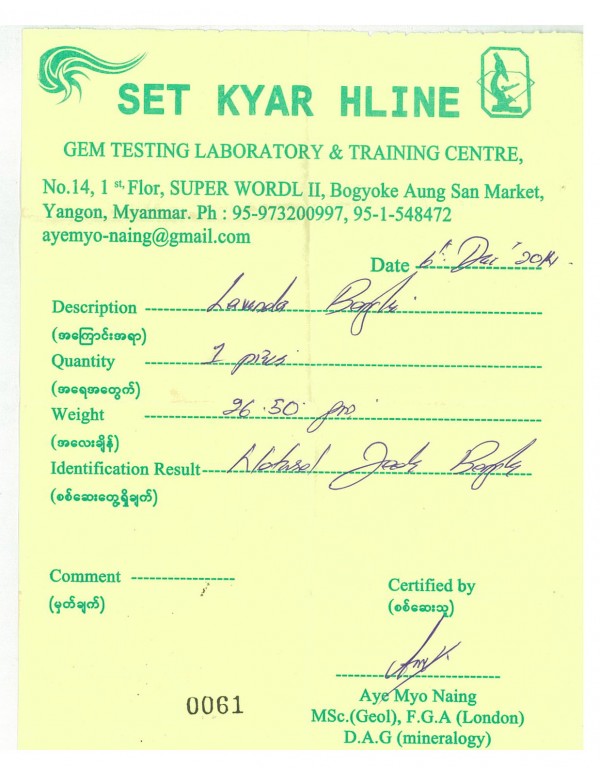 SET KYAR HLINE
GEM TESTING LABORATORY & TRAINING CENTRE,
No.14, 1 st, Flor, SUPER WORDL II, Bogyoke Aung San Market,
Yangon, Myanmar. Ph : 95-973200997, 95-1-548472
ayemyo-naing@gmail.com
Date 2014
Description
(အကြောင်းအရာ)
Quantity 1
(အရေအတွက်)
Weight 26.50 gm
(အလေးချိန်)
Identification Result Natural Jade
(စစ်ဆေးတွေ့ရှိချက်)
Comment
(မှတ်ချက်)
Certified by
(စစ်ဆေးသူ)
Aye Myo Naing
MSc.(Geol), F.G.A (London)
D.A.G (mineralogy)
0061